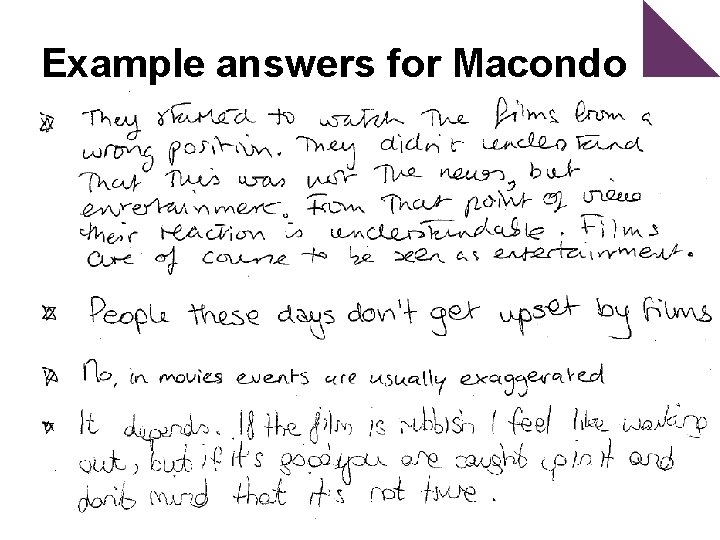 Example answers for Macondo
They started to watch the films from a
wrong position. They didn't understand
that this was not the news, but
entertainment. From that point of view
their reaction is understandable. Films
are of course to be seen as entertainment.
People these days don't get upset by films
No, in movies events are usually exaggerated
It depends. If the film is rubbish I feel like walking
out, but if it's good you are caught up in it and
don't mind that it's not true.